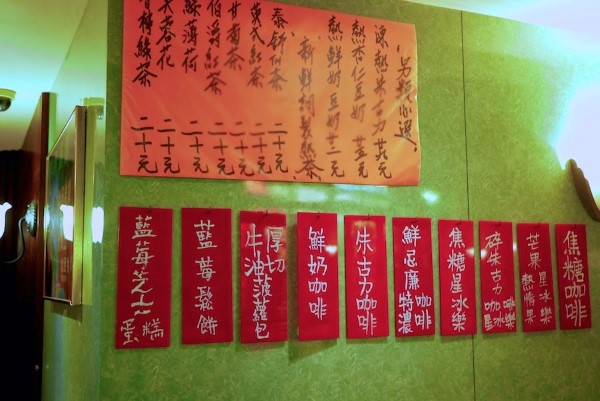 另類心選
凍熱朱古力
熱杏仁豆奶
熱鮮奶豆奶
新鮮網製熱茶
泰舒茶 二十元
英式紅茶 二十元
甘菊茶 二十元
伯爵紅茶 二十元
薄荷 二十元
二十元
綠茶 二十元
焦糖咖啡
芒果熱情果星冰樂
碎朱古力咖啡星冰樂
焦糖星冰樂
鮮忌廉特濃咖啡
朱古力咖啡
鮮奶咖啡
厚切牛油菠蘿包
藍莓鬆餅
藍莓芝士蛋糕